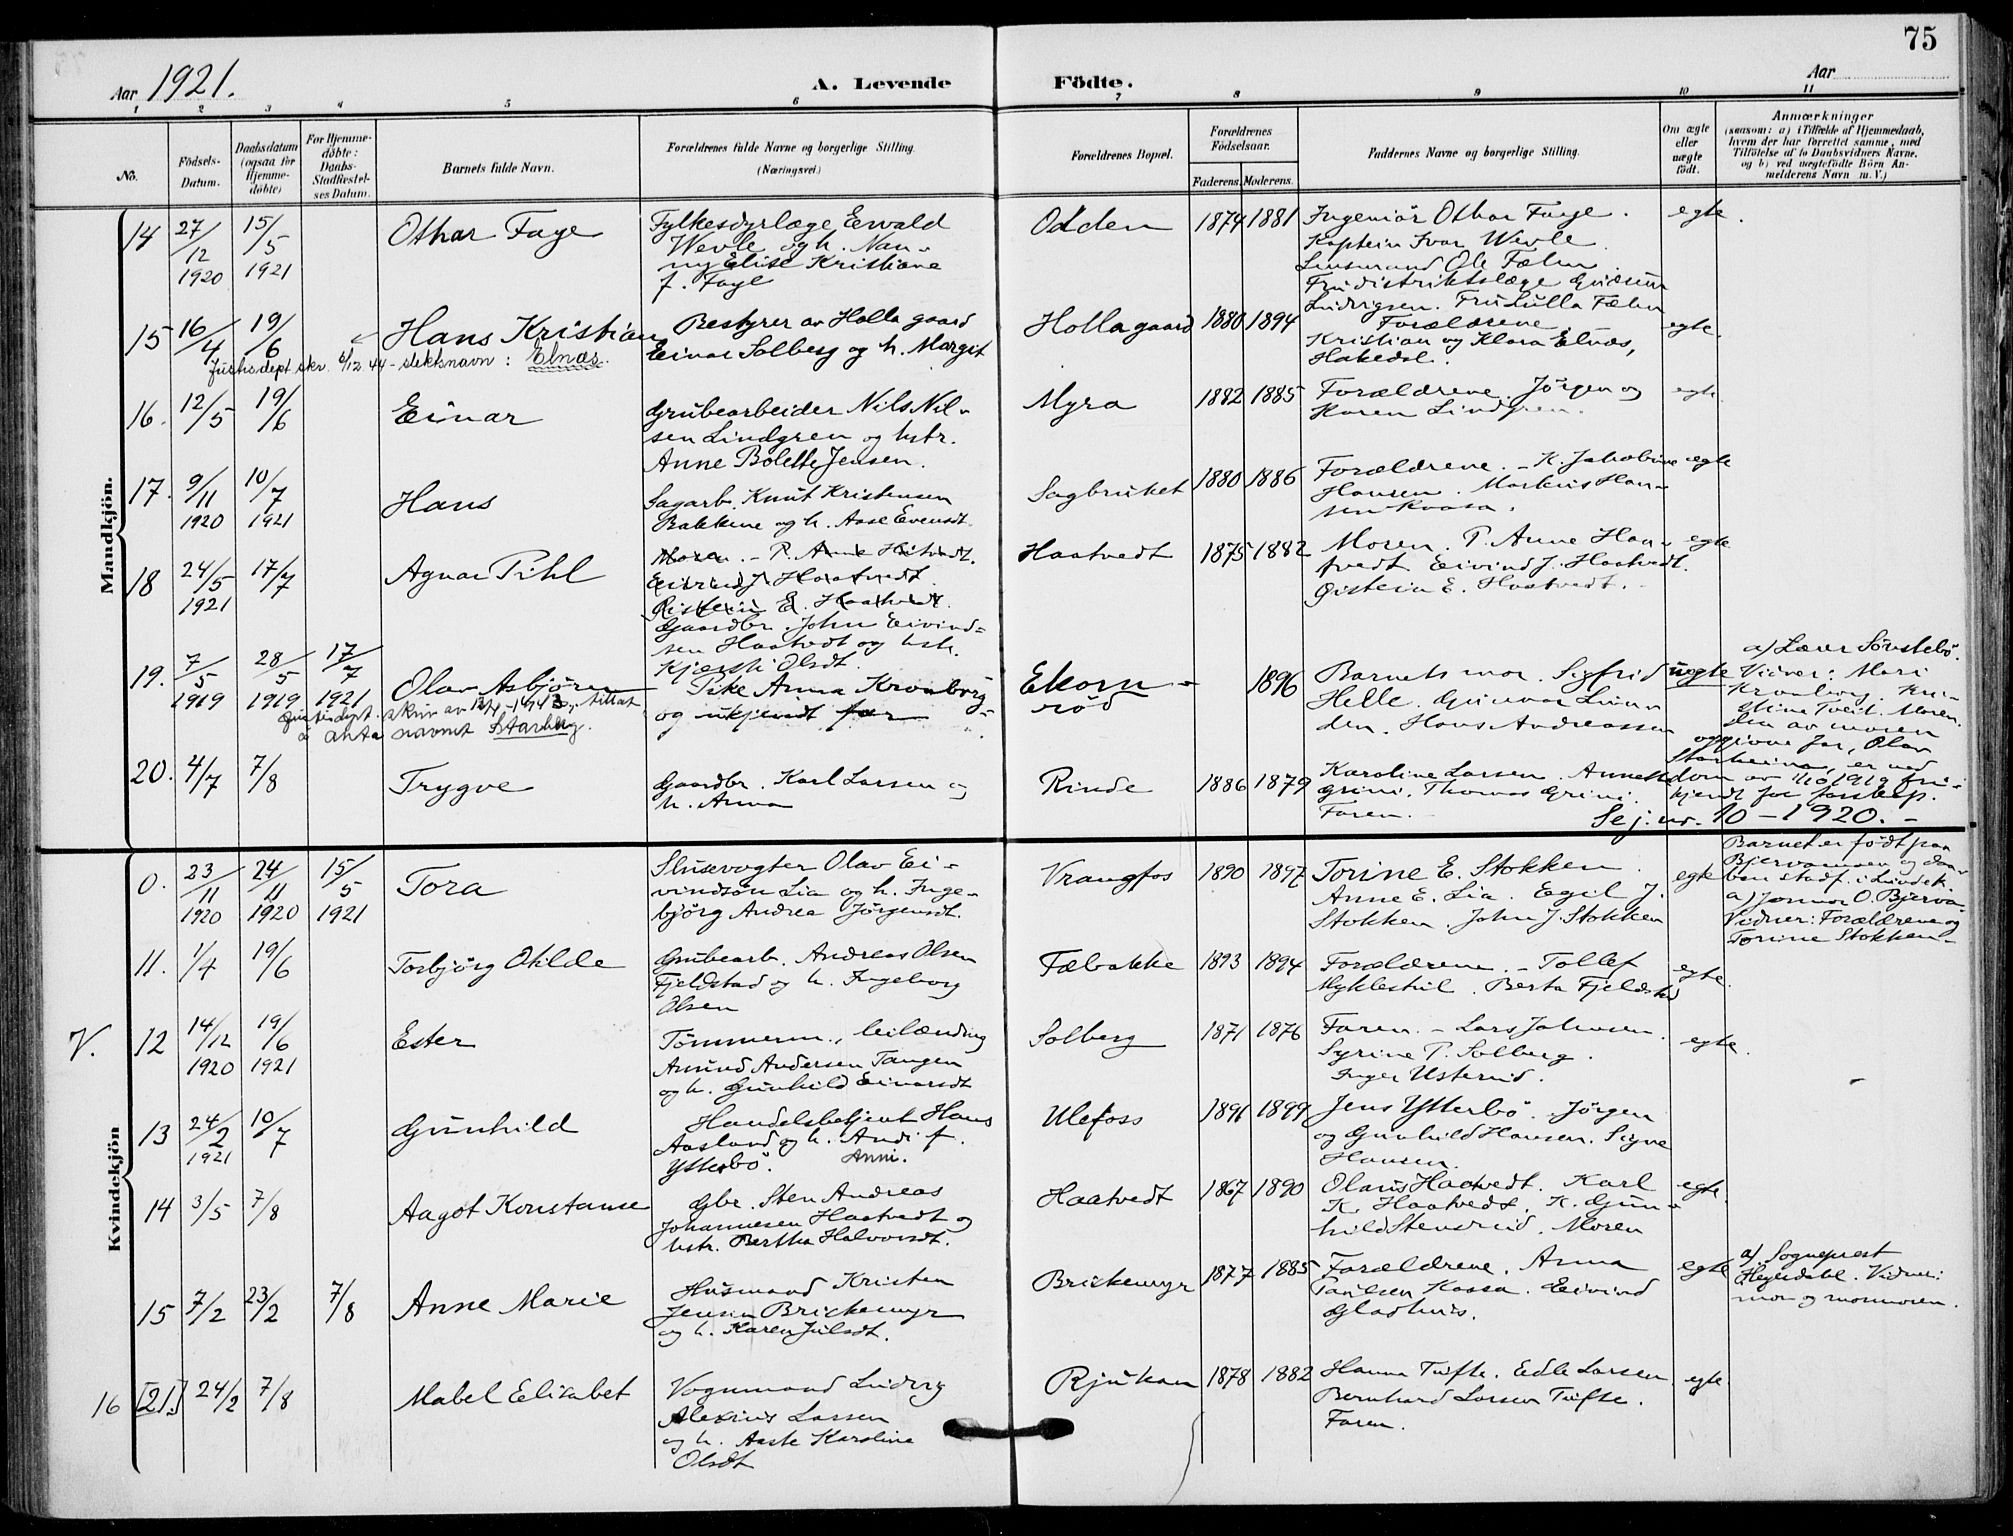 75
Aar 1921.
A. Levende Födte.
Aar
1 2 3 4 5 6 7 8 9 10 11
No.
Födsels-Datum.
Daabsdatum (ogsaa for Hjemme-döbte)
For Hjemme-döbte: Daabs-Stadfæstel-ses Datum.
Barnets fulde Navn.
Forældrenes fulde Navne og borgerlige Stilling. (Næringsvei.)
Forældrenes Bopæl.
Forældrenes Födselsaar.
Faderens. Moderens.
Faddernes Navne og borgerlige Stilling.
Om ægte eller uægte födt.
Anmærkninger
(saasom: a) i Tilfælde af Hjemmedaab,
hvem der har forrettet samme, med
Tilföielse af to Daabsvidners Navne.
og b) ved uægtefödte Börn An-
melderens Navn m. V.)
Mandkjön.
14 27/12 1920 15/5 1921 Othar Faye
Fylkesdyrlæge Ewald
Wevle og h. Nan-
ny Elise Kristiane
f. Faye
Odden 1874 1881
Ingeniör Othar Faye.
Kaptein Ivar Wevle.
Lensmand Ole Fæhn.
Fru distriktslæge
Ludvigsen. Fru Lulla Fæhn
egte.
15 16/4 19/6 Hans Kristian
Bestyrer av Holla gaard
Einar Solberg og h. Margit
Holla gaard 1880 1894
Forældrene.
Kristian og Klara Elnæs,
Hakedal.
egte.
Justisdept skr. 6/12 44 - slektsnavn: Elnæs.
16. 12/5 19/6 Einar
Grubearbeider Nils Nil-
sen Lindgren og hstr.
Anne Bolette Jensen.
Myra 1882 1885
Forældrene. Jörgen og
Karen Lindgren.
egte.
17. 9/11 1920 10/7 1921 Hans
Sagarb. Knut Kristensen
Bakkene og h. Aase Evensdt.
Sagbruket 1880 1886
Forældrene. - K. Jakobine
Hansen. Markus Han-
sen Kvasa.
egte
18 24/5 1921 17/7 Agnar Pihl
Moren. - P. Anne Haatvedt.
Eivind J. Haatvedt.
Øistein E. Haatvedt.
Gaardbr. John Eivind-
sen Haatvedt og hstr.
Kjersti Olsdt.
Haatvedt 1875 1882
Moren. P. Anne Haa-
tvedt. Eivind J. Haatvedt.
Øistein E. Haatvedt.
egte
19. 7/5 1919 28/5 1919 17/7 1921 Olav Asbjörn
Pike Anna Kromborg
og ukjendt far
Ekorn-
röd
1896
Barnets mor. Sigfrid
Helle. Gunvor Lun-
den. Hans Andreassen
uegte
a) Lærer Sönstebö.
Vidner: Mari
Kromborg. Kri-
stine Tveit. Moren.
Den av moren
opgivne far, Olav
er ved
dom av 11/10 1919 fri-
kjendt for farskap.
Sej. nr. 10 - 1920. -
Justisdept. skriv av - 1943, tillat
å anta navnet Starberg.
20. 4/7 7/8 Trygve
Gaardbr. Karl Larsen og
h. Anna
Rinde 1886 1879
Karoline Larsen. Annette
Grini. Thomas Grini.
Faren.
Kvindekjön
0. 23/11 1920 24/11 1920 15/5 1921 Tora
Slusevogter Olav Ei-
vindsøn Lia og h. Inge-
björg Andrea Jörgensdt.
Vrangfos 1890 1897
Torine E. Stokken.
Anne E. Lia. Egil J.
Stokken. John J. Stokken
egte
Barnet er födt paa
Bjervamoen og daa-
ben stadf. i Lundek.
a) Jormor O. Bjerva
Vidner: Forældrene og
Torine Stokken.
11. 1/4 19/6 Torbjörg Otilde
Grubearb. Andreas Olsen
Fjeldstad og h. Ingeborg
Olsen
Fæbakke 1893 1894
Forældrene. - Tollef
Myklestul. Berta Fjeldstad
egte.
V. 12 14/12 1920 19/6 1921 Ester
Tömmerm., leilænding
Amund Andersen Tangen
og h. Gunhild Einarsdt
Solberg 1871 1876
Faren. - Lars Johnsen.
Syrine P. Solberg.
Inger Usterud.
egte.
13 24/2 1921 10/7 Gunhild
Handelsbetjent Hans
Aasland og h. Andi f.
Ytterbö. Anni.
Ulefoss 1896 1899
Jens Ytterbö. Jörgen
og Gunhild Hansen. Signe
Hansen.
14 3/5 7/8 Aagot Konstanse
Gbr. Sten Andreas
Johannesen Haatvedt og
hstr. Bertha Halvorsdt.
Haatvedt 1867 1890
Olaus Haatvedt. Karl
K. Haatvedt. K. Gun-
hild Stensrud. Moren
egte.
15 7/2 23/2 7/8 Anne Marie
Husmand Kristen
Jensen Brickemyr
og h. Karen Julsdt.
Brickemyr 1877 1885
Forældrene. Anna
Paulsen Kassa. Eivind
Gladhus.
egte
a) Sogneprest
Heyerdahl. Vidner:
mor og mormoren.
16 [21.] 24/2 7/8 Mabel Elisabet
Vognmand Ludvig
Alexius Larsen
og h. Aaste Karoline
Olsdt
Rjukan 1878 1882
Hanna Tufte. Edle Larsen.
Bernhard Larsen Tufte.
Faren.
egte